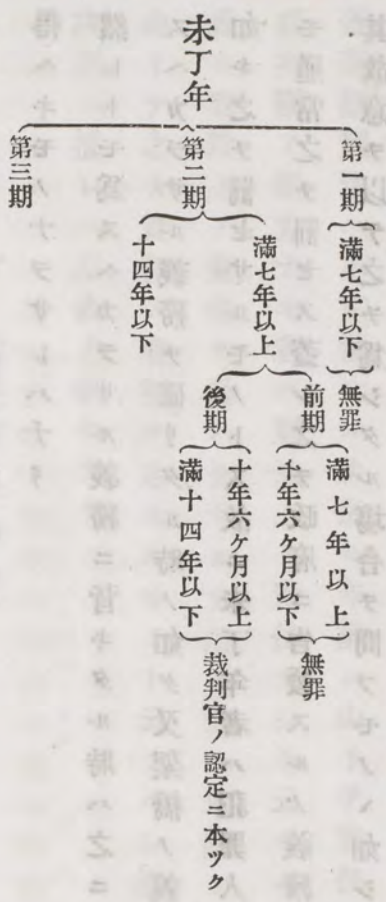 未丁年
第一期
滿七年以下
無罪
第二期
滿七年以上
十四年以下
前期
滿七年以上
十年六ケ月以下
無罪
後期
十年六ケ月以上
滿十四年以下
裁判官ノ認定ニ本ツク
第三期